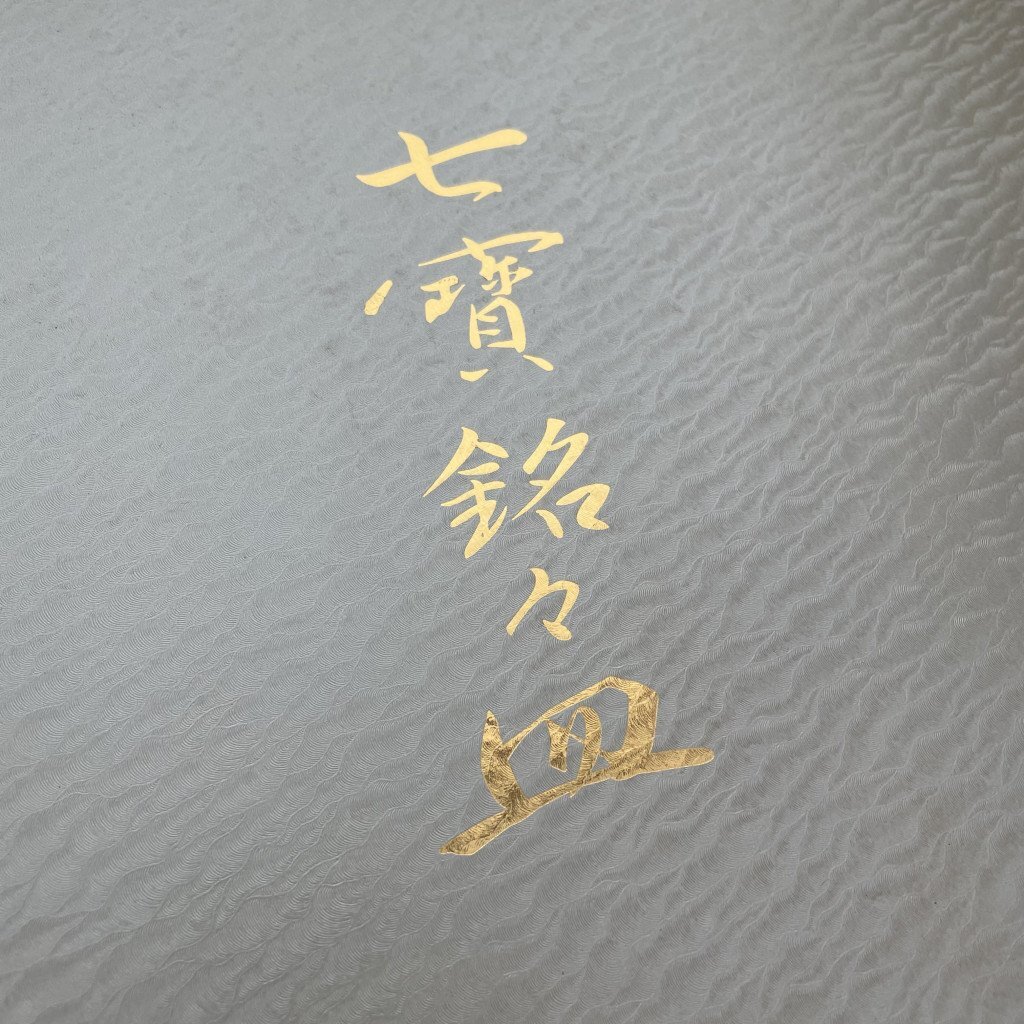 七寶銘々皿